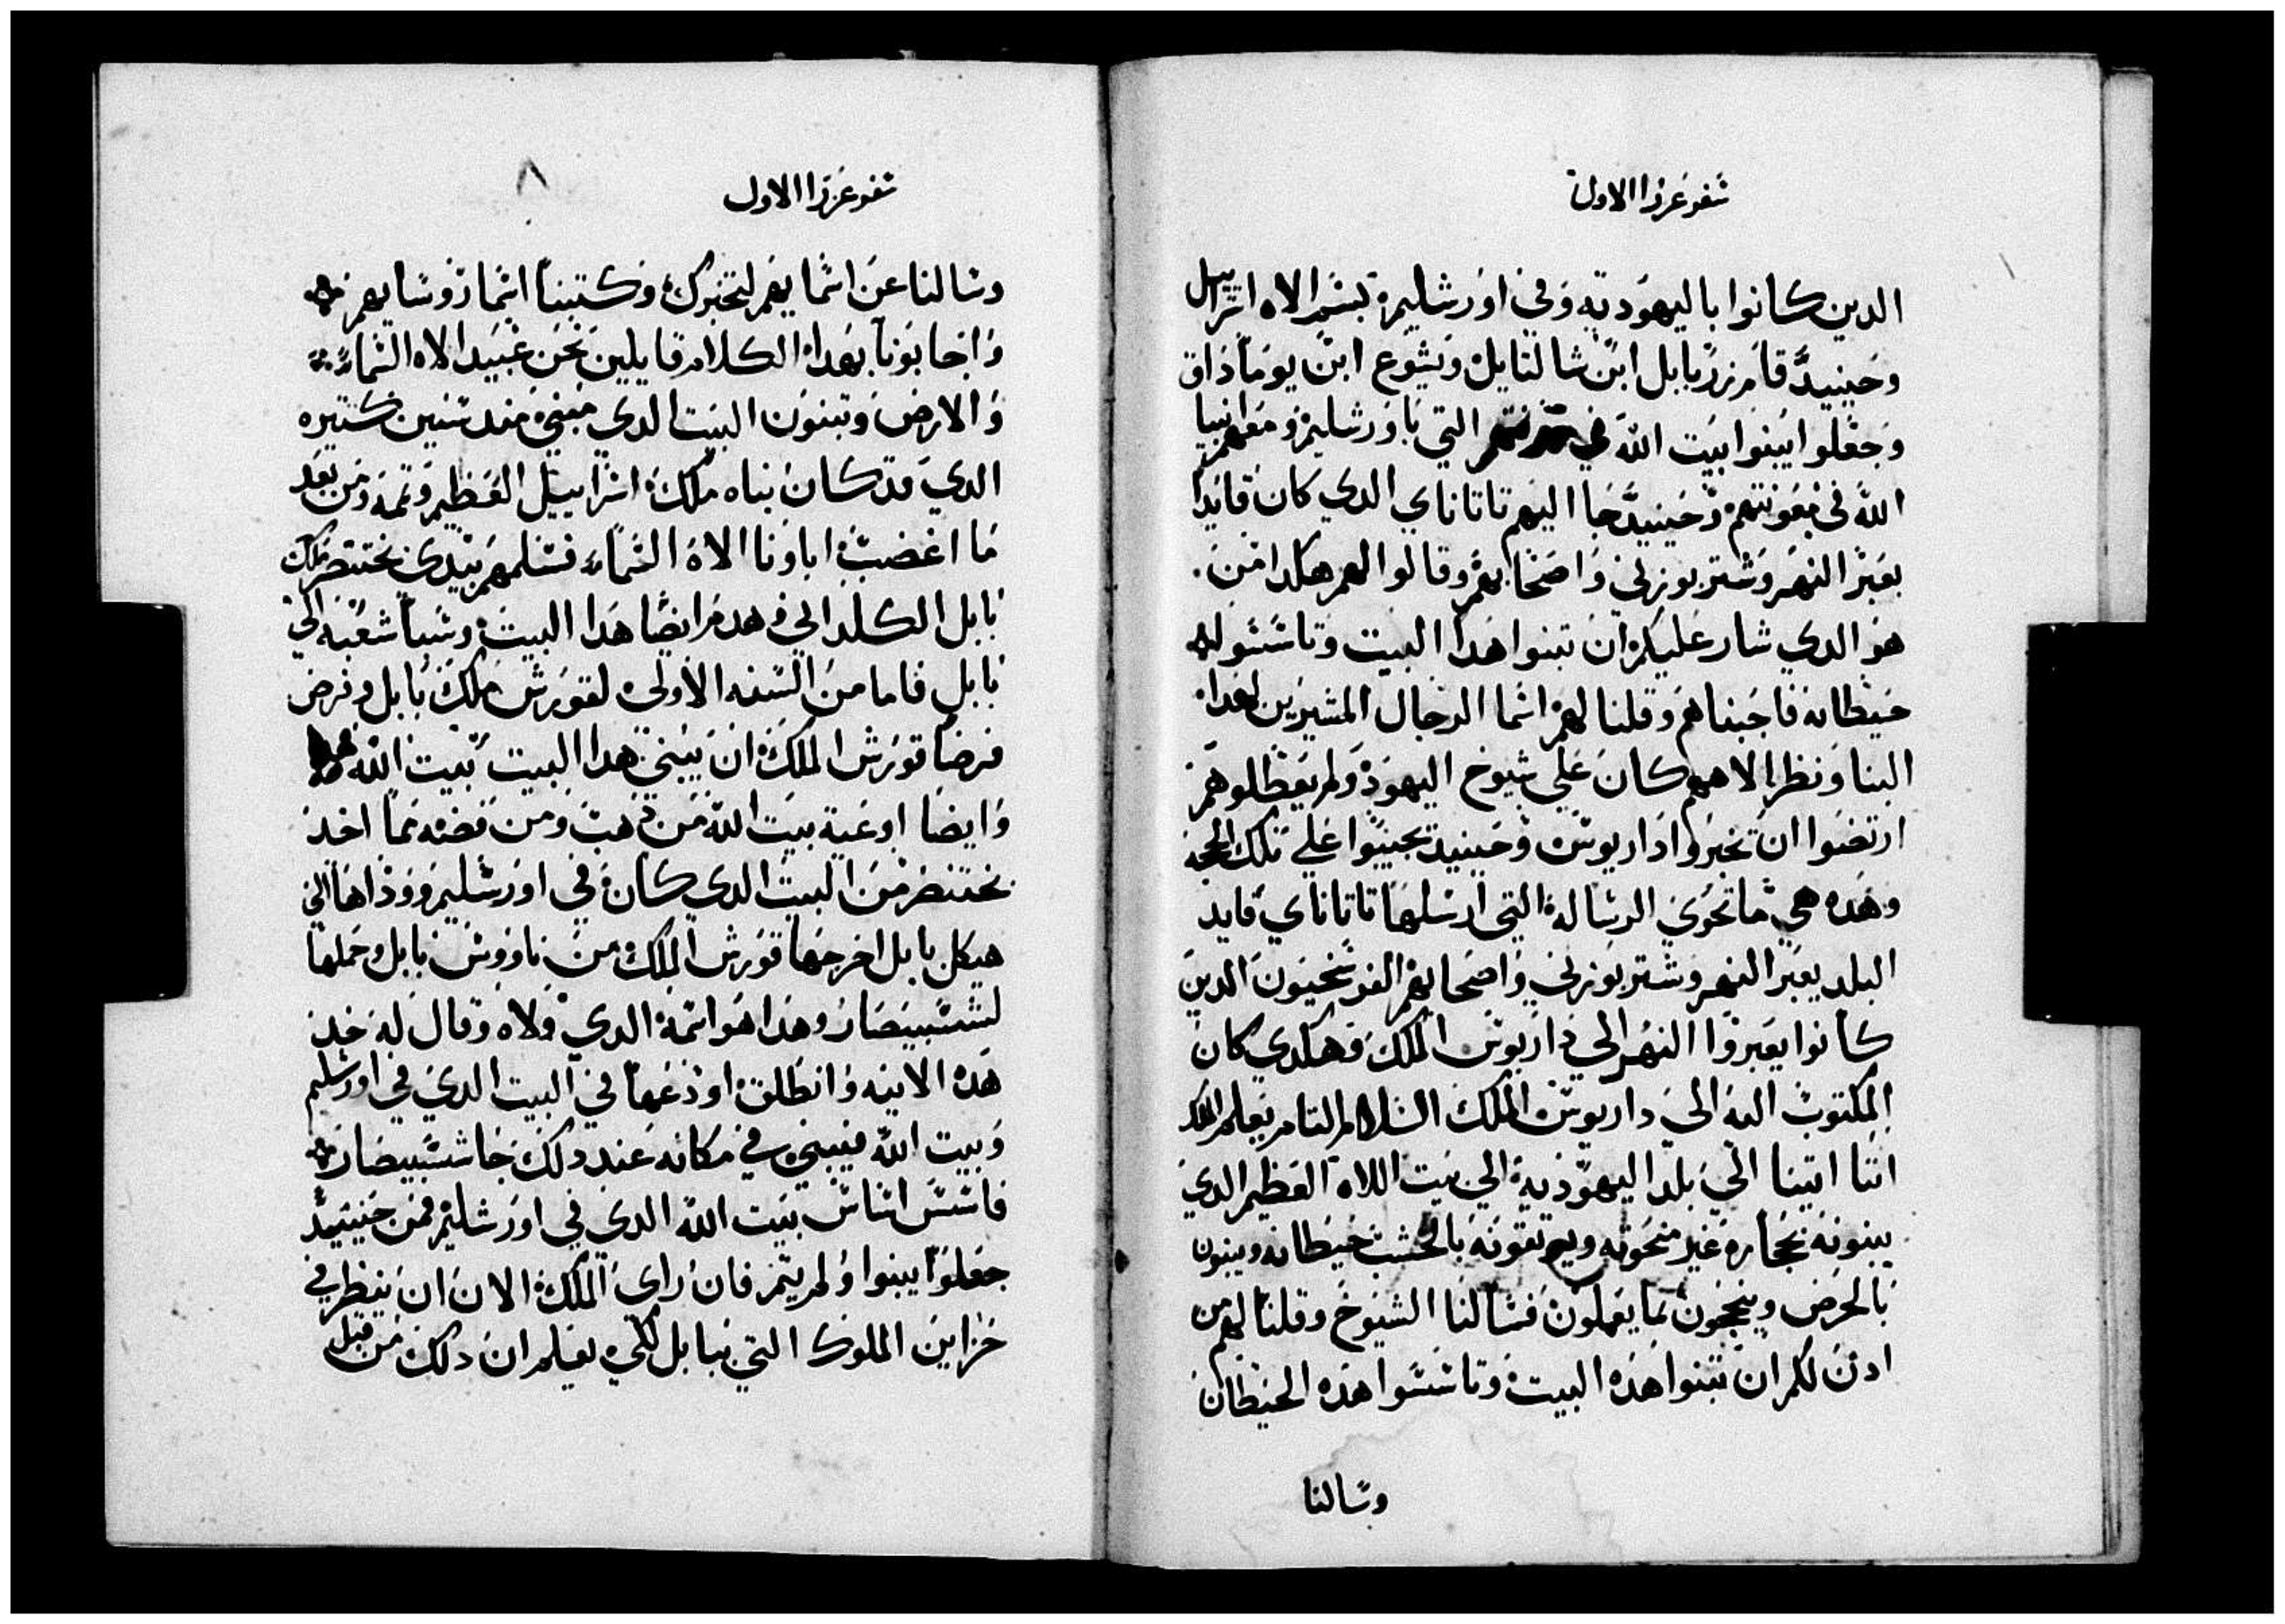 سفر عزرا الاول
الدين كانوا باليهوديه وفي اورشليم بسم الاه اسراييل
وحينيد قام زربابل ابن شالتايل ويشوع ابن يوماداق
وجعلوا يبنوا بيت الله في التي باورشليم ومعهم انبيا
الله في معونتهم وحينيد جا اليهم تاتاناي الدي كان قايدا
بعبر النهر وشتربوزني واصحابهم وقالوا لهم هكدا من
هو الدي شار عليكم ان تبنوا هدا البيت وتاسسوا
حيطانه فاجبناهم وقلنا لهم اسما الرجال المشيرين لهدا
البنا ونظر الاههم كان علي شيوخ اليهود ولم يعطلوهم
ارتضوا ان تخبروا داريوس وحينيد يجيبوا علي تلك الحجه
وهده هي ما تحوي الرساله التي ارسلها تاتاناي قايد
البلد بعبر النهر وشتربوزني واصحابهم الفرسخيون الدين
كانوا بعبروا النهر الي داريوس الملك وهكدي كان
المكتوب اليه الي داريوس الملك السلام التام يعلم الملك
اننا اتينا الي بلد اليهوديه الي بيت الاه العظيم الدي
يبنونه بحجاره غير منحوته ويوتقونه بالخشب حيطانه ويبنون
بالحرص وينجحون بما يعملون فسالنا الشيوخ وقلنا لهم من
ادن لكم ان تبنوا هده البيت وتاسسوا هده الحيطان
وسالنا
سفر عزرا الاول
٨
وسالنا عن اسمايهم لنخبرك وكتبنا اسما روسايهم
واجابونا بهدا الكلام قايلين نحن عبيد الاه السما
والارض وتبنون البيت الدي مبني مند سنين كتيره
الدي قد كان بناه ملك اسراييل العظيم وتمه ومن بعد
ما اغضب اباونا الاه السما فسلمهم بيدي بختنصر ملك
بابل الكلداني وهدم ايضا هدا البيت وسبا شعبه الي
بابل فاما من السنه الاولي لقورش ملك بابل وفرض
فرضا قورش الملك ان يبني هدا البيت بيت الله
وايضا اوعية بيت الله من دهب ومن فضه مما اخد
بختنصر من البيت الدي كان في اورشليم ووداها الي
هيكل بابل اخرجها قورش الملك من ناووس بابل وحملها
لشسبيصار وهدا هو اسمه الدي ولاه وقال له خد
هده الانيه وانطلق اودعها في البيت الدي في اورشليم
وبيت الله فيبني في مكانه عند دلك جا شسبيصار
فاسس اساس بيت الله الدي في اورشليم فمن حينيد
جعلوا يبنوا ولم يتم فان راي الملك الان ان ينظر في
خزاين الملوك التي ببابل لكي يعلم ان دلك من قبل